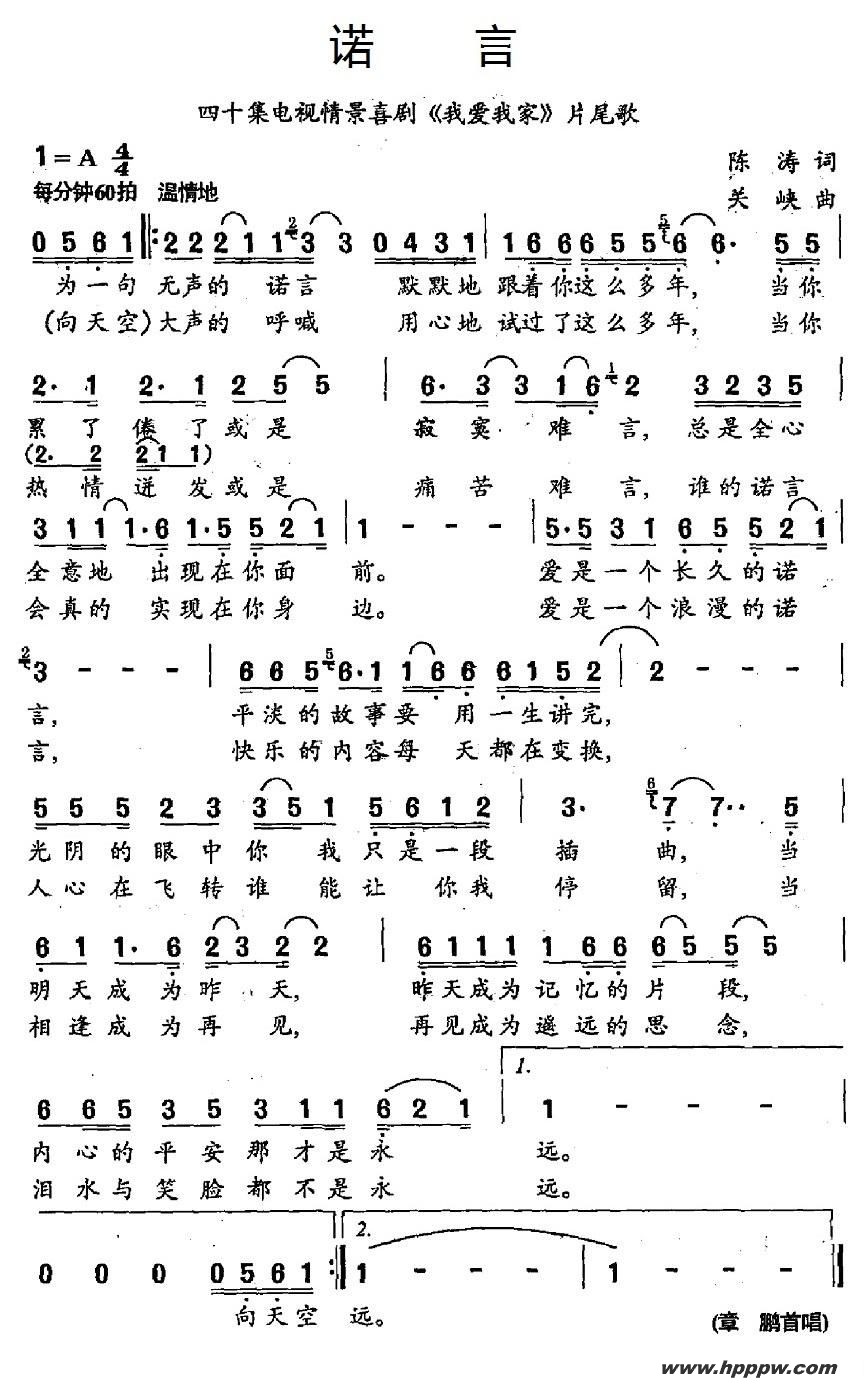 诺 言
四十集电视情景喜剧《我爱我家》片尾歌
1=A 4/4
陈 涛 词
每分钟60拍 温情地
关 峡 曲
0 5 6 1 2 2 2 2 1 1 2 3 3 0 4 3 1 1 6 6 6 5 5 5 6 6· 5 5
为一句 无声的 诺言 默默地 跟着你这么多年, 当你
(向天空)大声的 呼喊 用心地 试过了这么多年, 当你
2· 1 2· 1 2 5 5 6· 3 3 1 6 1 2 3 2 3 5
累了倦了或是 寂寞 难言, 总是全心
(2· 2 2 1 1)
热情迸发或是 痛苦 难言, 谁的诺言
3 1 1 1 1· 6 1· 5 5 2 1 1 - - - 5· 5 3 1 6 5 5 2 1
全意地 出现在你面 前。 爱是一个长久的诺
会真的 实现在你身 边。 爱是一个浪漫的诺
2 3 - - - 6 6 5 5 6· 1 1 6 6 6 1 5 2 2 - -
言, 平淡的故事要 用一生讲完,
言, 快乐的内容每 天都在变换,
5 5 5 2 3 3 5 1 5 6 1 2 3· 6 7 7·· 5
光阴的眼中你 我只是一段 插 曲, 当
人心在飞转谁 能让 你我 停 留, 当
6 1 1· 6 2 3 2 2 6 1 1 1 1 6 6 6 5 5 5
明天成为昨 天, 昨天成为记忆的片 段,
相逢成为再 见, 再见成为遥远的思 念,
1.
6 6 5 3 5 3 1 1 6 2 1 1 - - -
内心的平安那才是永 远。
泪水与笑脸都不是永 远。
2.
0 0 0 0 5 6 1 1 - - - 1 - - -
向天空 远。
(章 鹏首唱)
www.hpppw.com